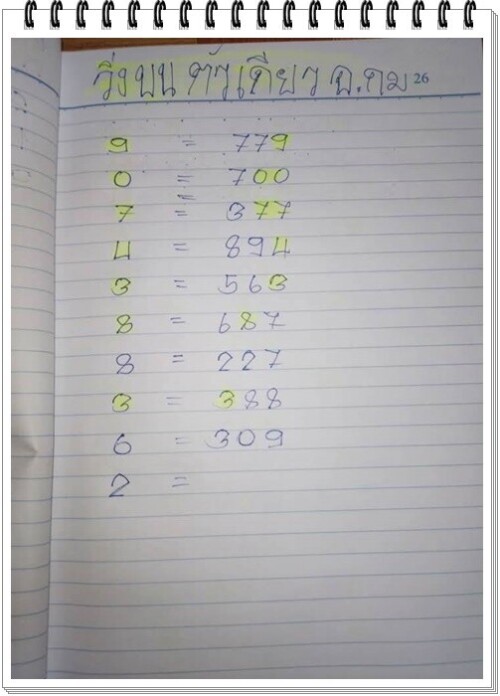 วิ่งบน ตัวเดียว อ.คม 26
9 = 779
0 = 700
7 = 377
4 = 894
3 = 563
8 = 687
8 = 227
3 = 388
6 = 309
2 =